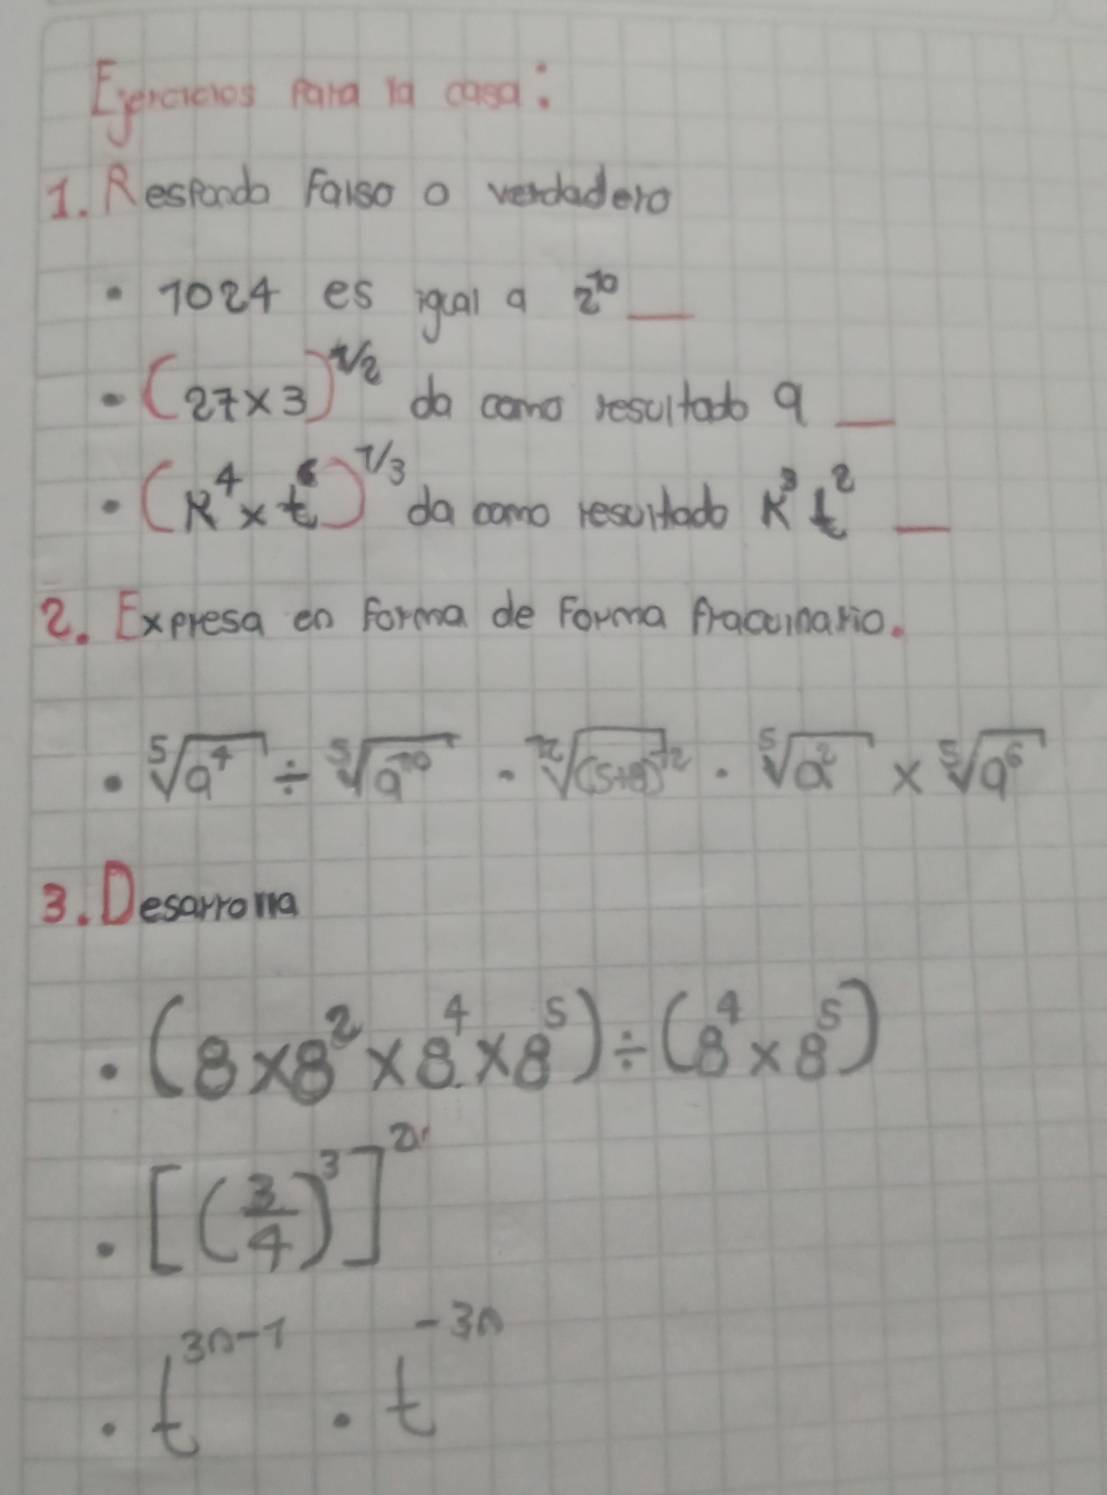 Ejercicios para la casa:
1. Responda Falso o verdadero
• 1024 es igual a 2^10 __
• (27×3)^1/2 da como resultado 9 __
• (K^4 × t^6)^1/3 da como resultado K^3 t^2 __
2. Expresa en forma de Forma fraccinario.
• ⁵√a^4 ÷ ⁵√a^10 • ¹²√(5+a)^12 • ⁵√a^2 × ⁵√a^6
3. Desarrolla
• (8×8^2×8^4×8^5)÷(8^4×8^5)
• [(3/4)^3]^2
• t^3n-1 • t^-3n